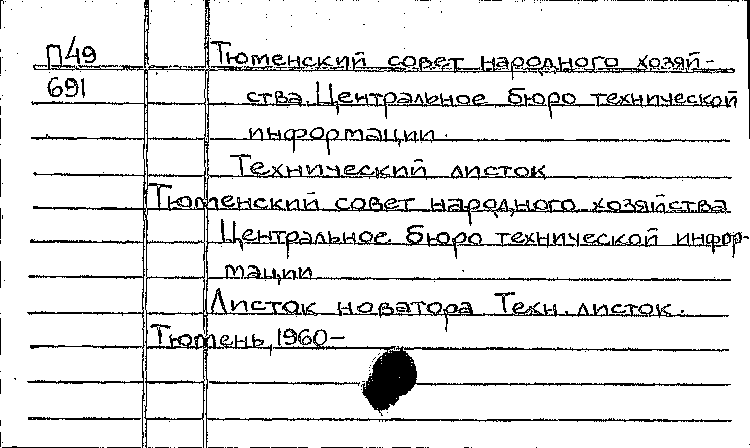 П49 Тюменский совет народного хозяй-
691 ства. Центральное бюро технической
информации.
Технический листок
Тюменский совет народного хозяйства
Центральное бюро технической инфор-
мации
Листок новатора Техн. листок.
Тюмень, 1960-